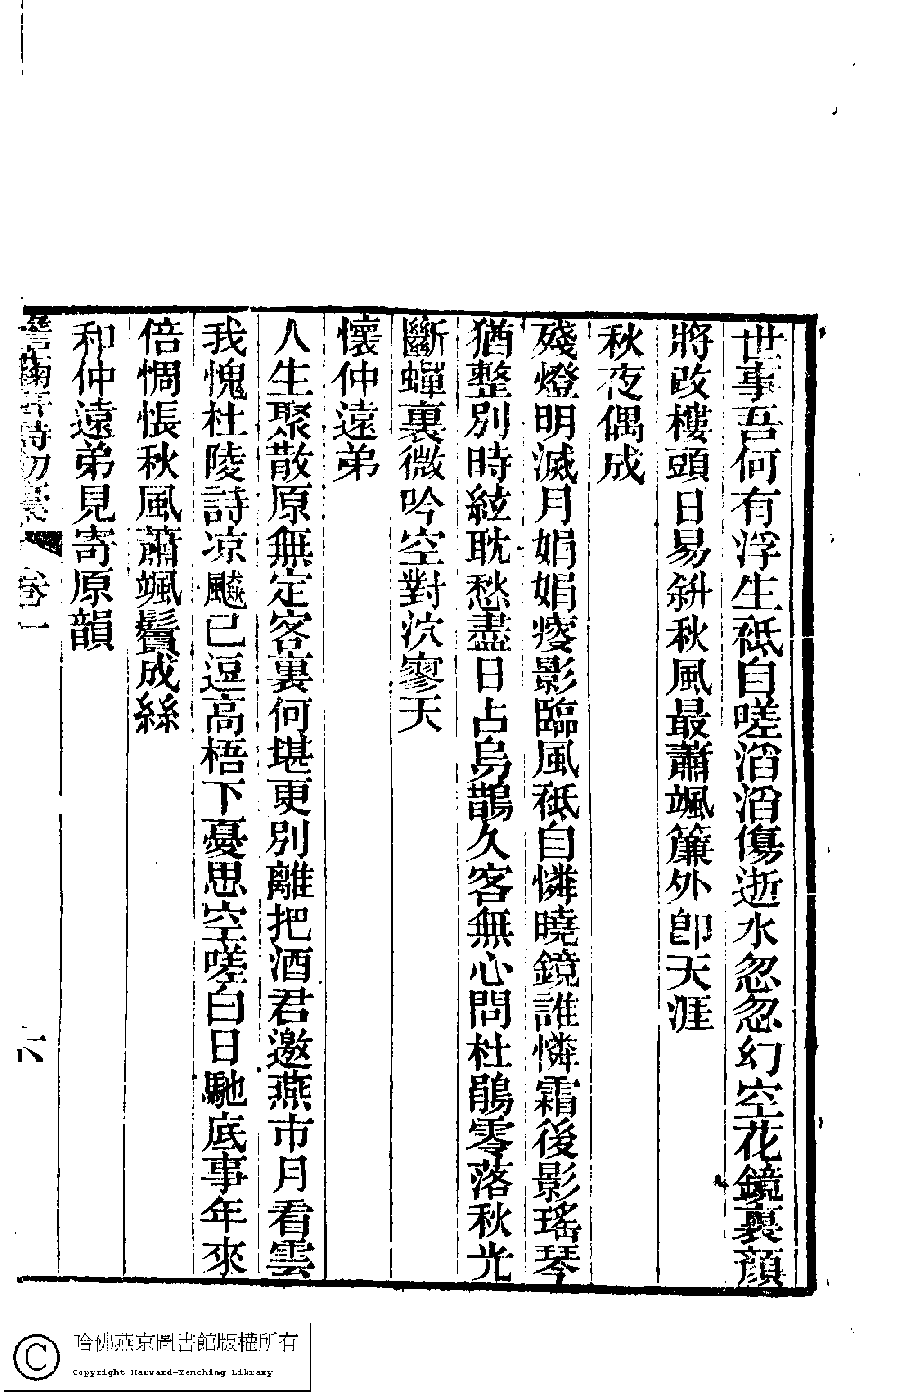 世事吾何有浮生祗自嗟滔滔傷逝水忽忽幻空花鏡裏顏
將改樓頭日易斜秋風最蕭颯簾外卽天涯
秋夜偶成
殘燈明滅月娟娟瘦影臨風祗自憐曉鏡誰憐霜後影瑤琴
猶整別時絃耽愁盡日占烏鵲久客無心問杜鵑零落秋光
斷蟬裏微吟空對泬寥天
懷仲遠弟
人生聚散原無定客裏何堪更別離把酒君邀燕市月看雲
我愧杜陵詩凉飈已逗高梧下憂思空嗟白日馳底事年來
倍惆悵秋風蕭颯鬢成絲
和仲遠弟見寄原韻
詩初稾 卷一
六
哈佛燕京圖書館版權所有
Copyright Harvard-Yenching Library